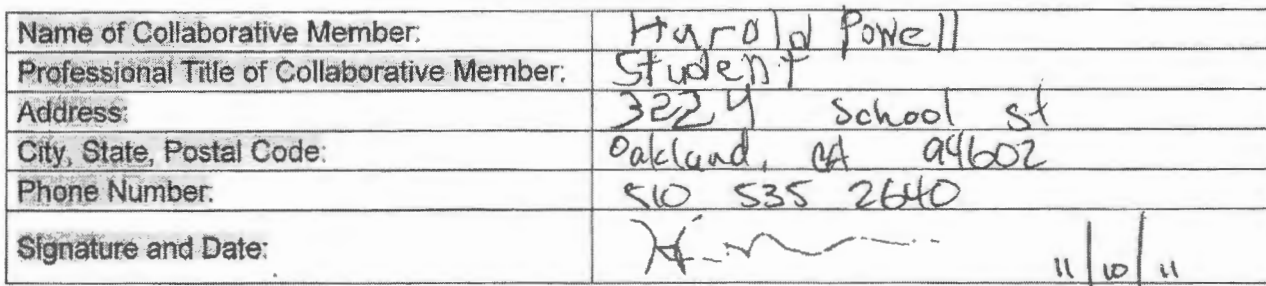 Name of Collaborative Member: Harold Powell
Professional Title of Collaborative Member: Student
Address: 3224 School St
City, State, Postal Code: Oakland, CA 94602
Phone Number: 510 535 2640
Signature and Date: 11/10/11